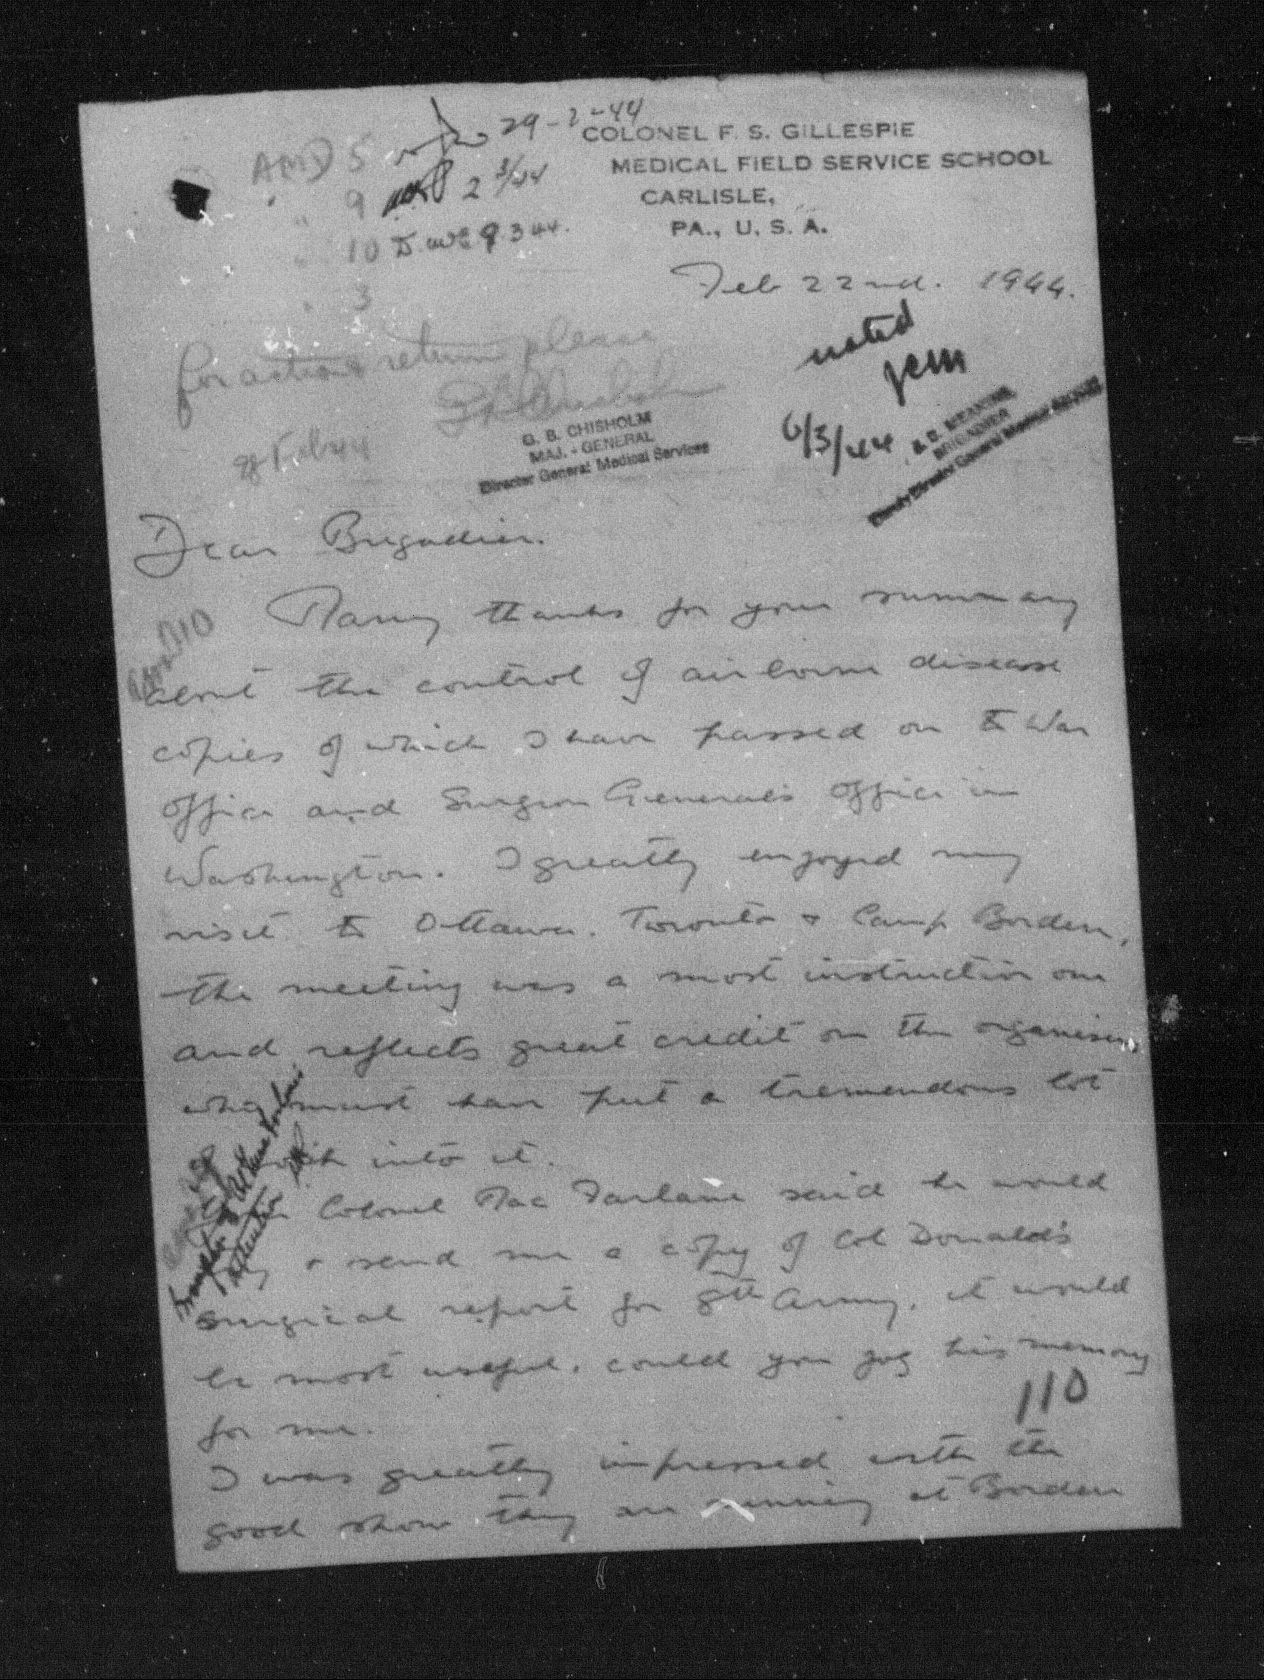 COLONEL F. S. GILLESPIE
MEDICAL FIELD SERVICE SCHOOL
CARLISLE,
PA., U. S. A.
AMD 5 29-2-44
" 9 2 3/44
" 10 9 3 44.
" 3
Feb 22nd. 1944.
for action & return please
noted
jcm
6/3/44
G. B. CHISHOLM
MAJ. - GENERAL
Director General Medical Services
BRIGADIER
Deputy Director General Medical Services
Feb 44
Dear Brigadier.
Many thanks for your summary
about the control of airborne disease
copies of which I have passed on to War
Office and Surgeon General's Office in
Washington. I greatly enjoyed my
visit to Ottawa. Toronto & Camp Borden,
the meeting was a most instructive one
and reflects great credit on the organisers,
who must have put a tremendous lot
work into it.
Colonel MacFarlane said he would
& send me a copy of Col Donald's
surgical report for 8th Army, it would
be most useful, could you jog his memory
for me.
110
I was greatly impressed with the
good show they are running at Borden